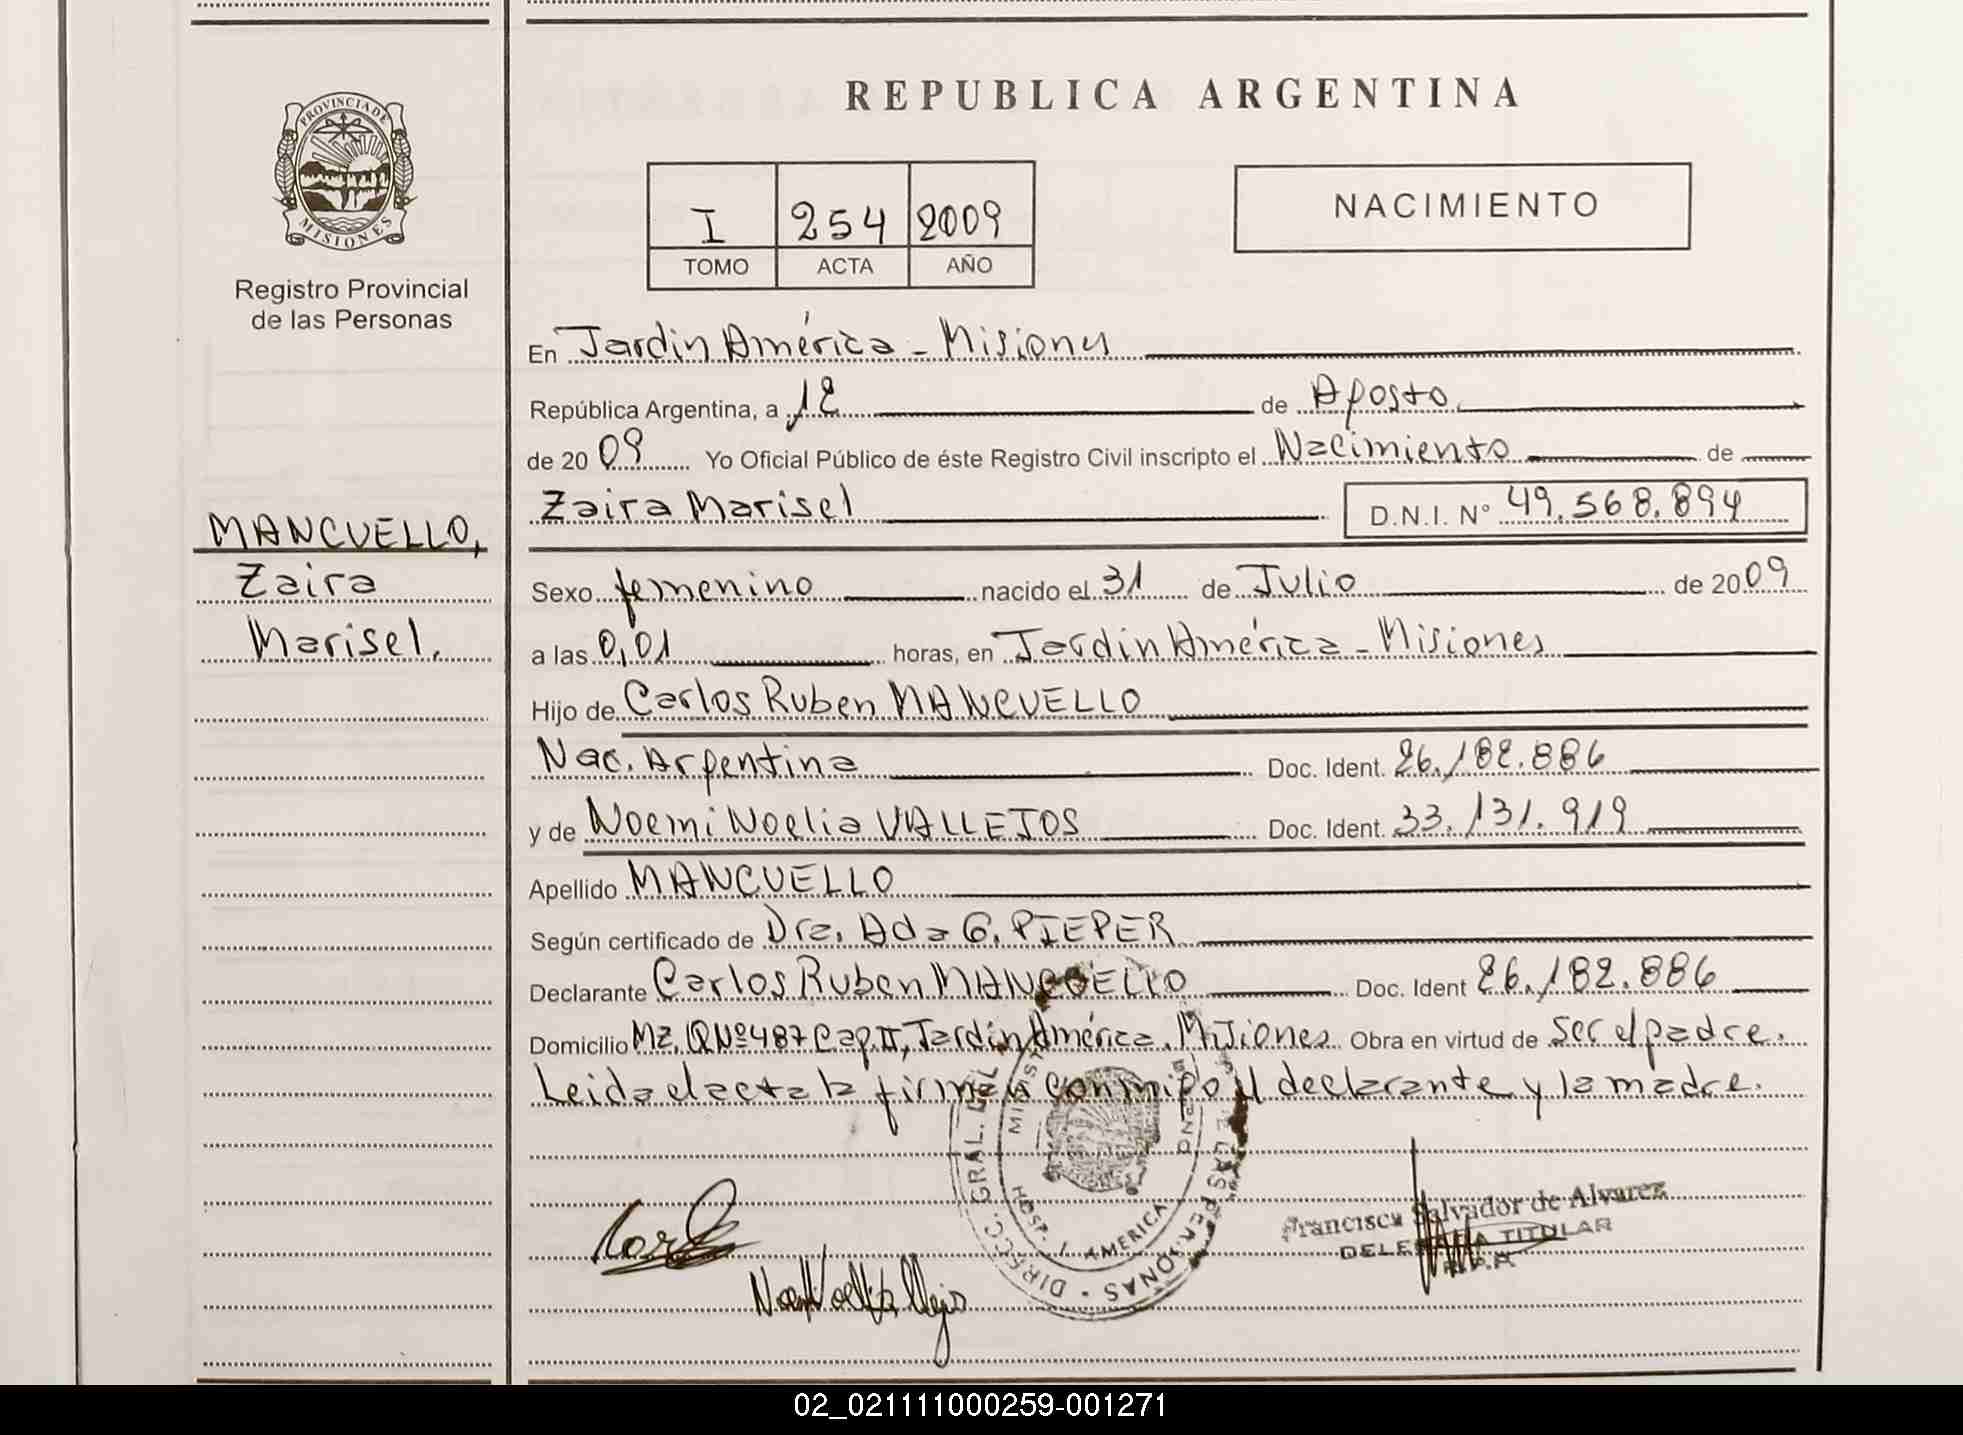 REPUBLICA ARGENTINA
PROVINCIA DE
MISIONES
Registro Provincial
de las Personas
I 254 2009
TOMO ACTA AÑO
NACIMIENTO
En Jardin América - Misiones
República Argentina, a 12 de Agosto
de 2009 Yo Oficial Público de éste Registro Civil inscripto el Nacimiento de
Zaira Marisel D.N.I. N° 49.568.894
MANCUELLO,
Zaira
Marisel.
Sexo femenino nacido el 31 de Julio de 2009
a las 0,01 horas, en Jardin América - Misiones
Hijo de Carlos Ruben MANCUELLO
Nac. Argentina Doc. Ident. 26.182.886
y de Noemi Noelia VALLEJOS Doc. Ident. 33.131.919
Apellido MANCUELLO
Según certificado de Dra. Ada G. PIEPER
Declarante Carlos Ruben MANCUELLO Doc. Ident 26.182.886
Domicilio Mz. Q Nº 487 Cap. II, Jardin América. Misiones Obra en virtud de ser el padre.
Leida el acta la firman conmigo el declarante y la madre.
DIRECC. GRAL. DEL PERSONAS
HOSP. J. AMERICA
Francisca Salvador de Alvarez
DELEGADA TITULAR
R.P.P.
02_021111000259-001271